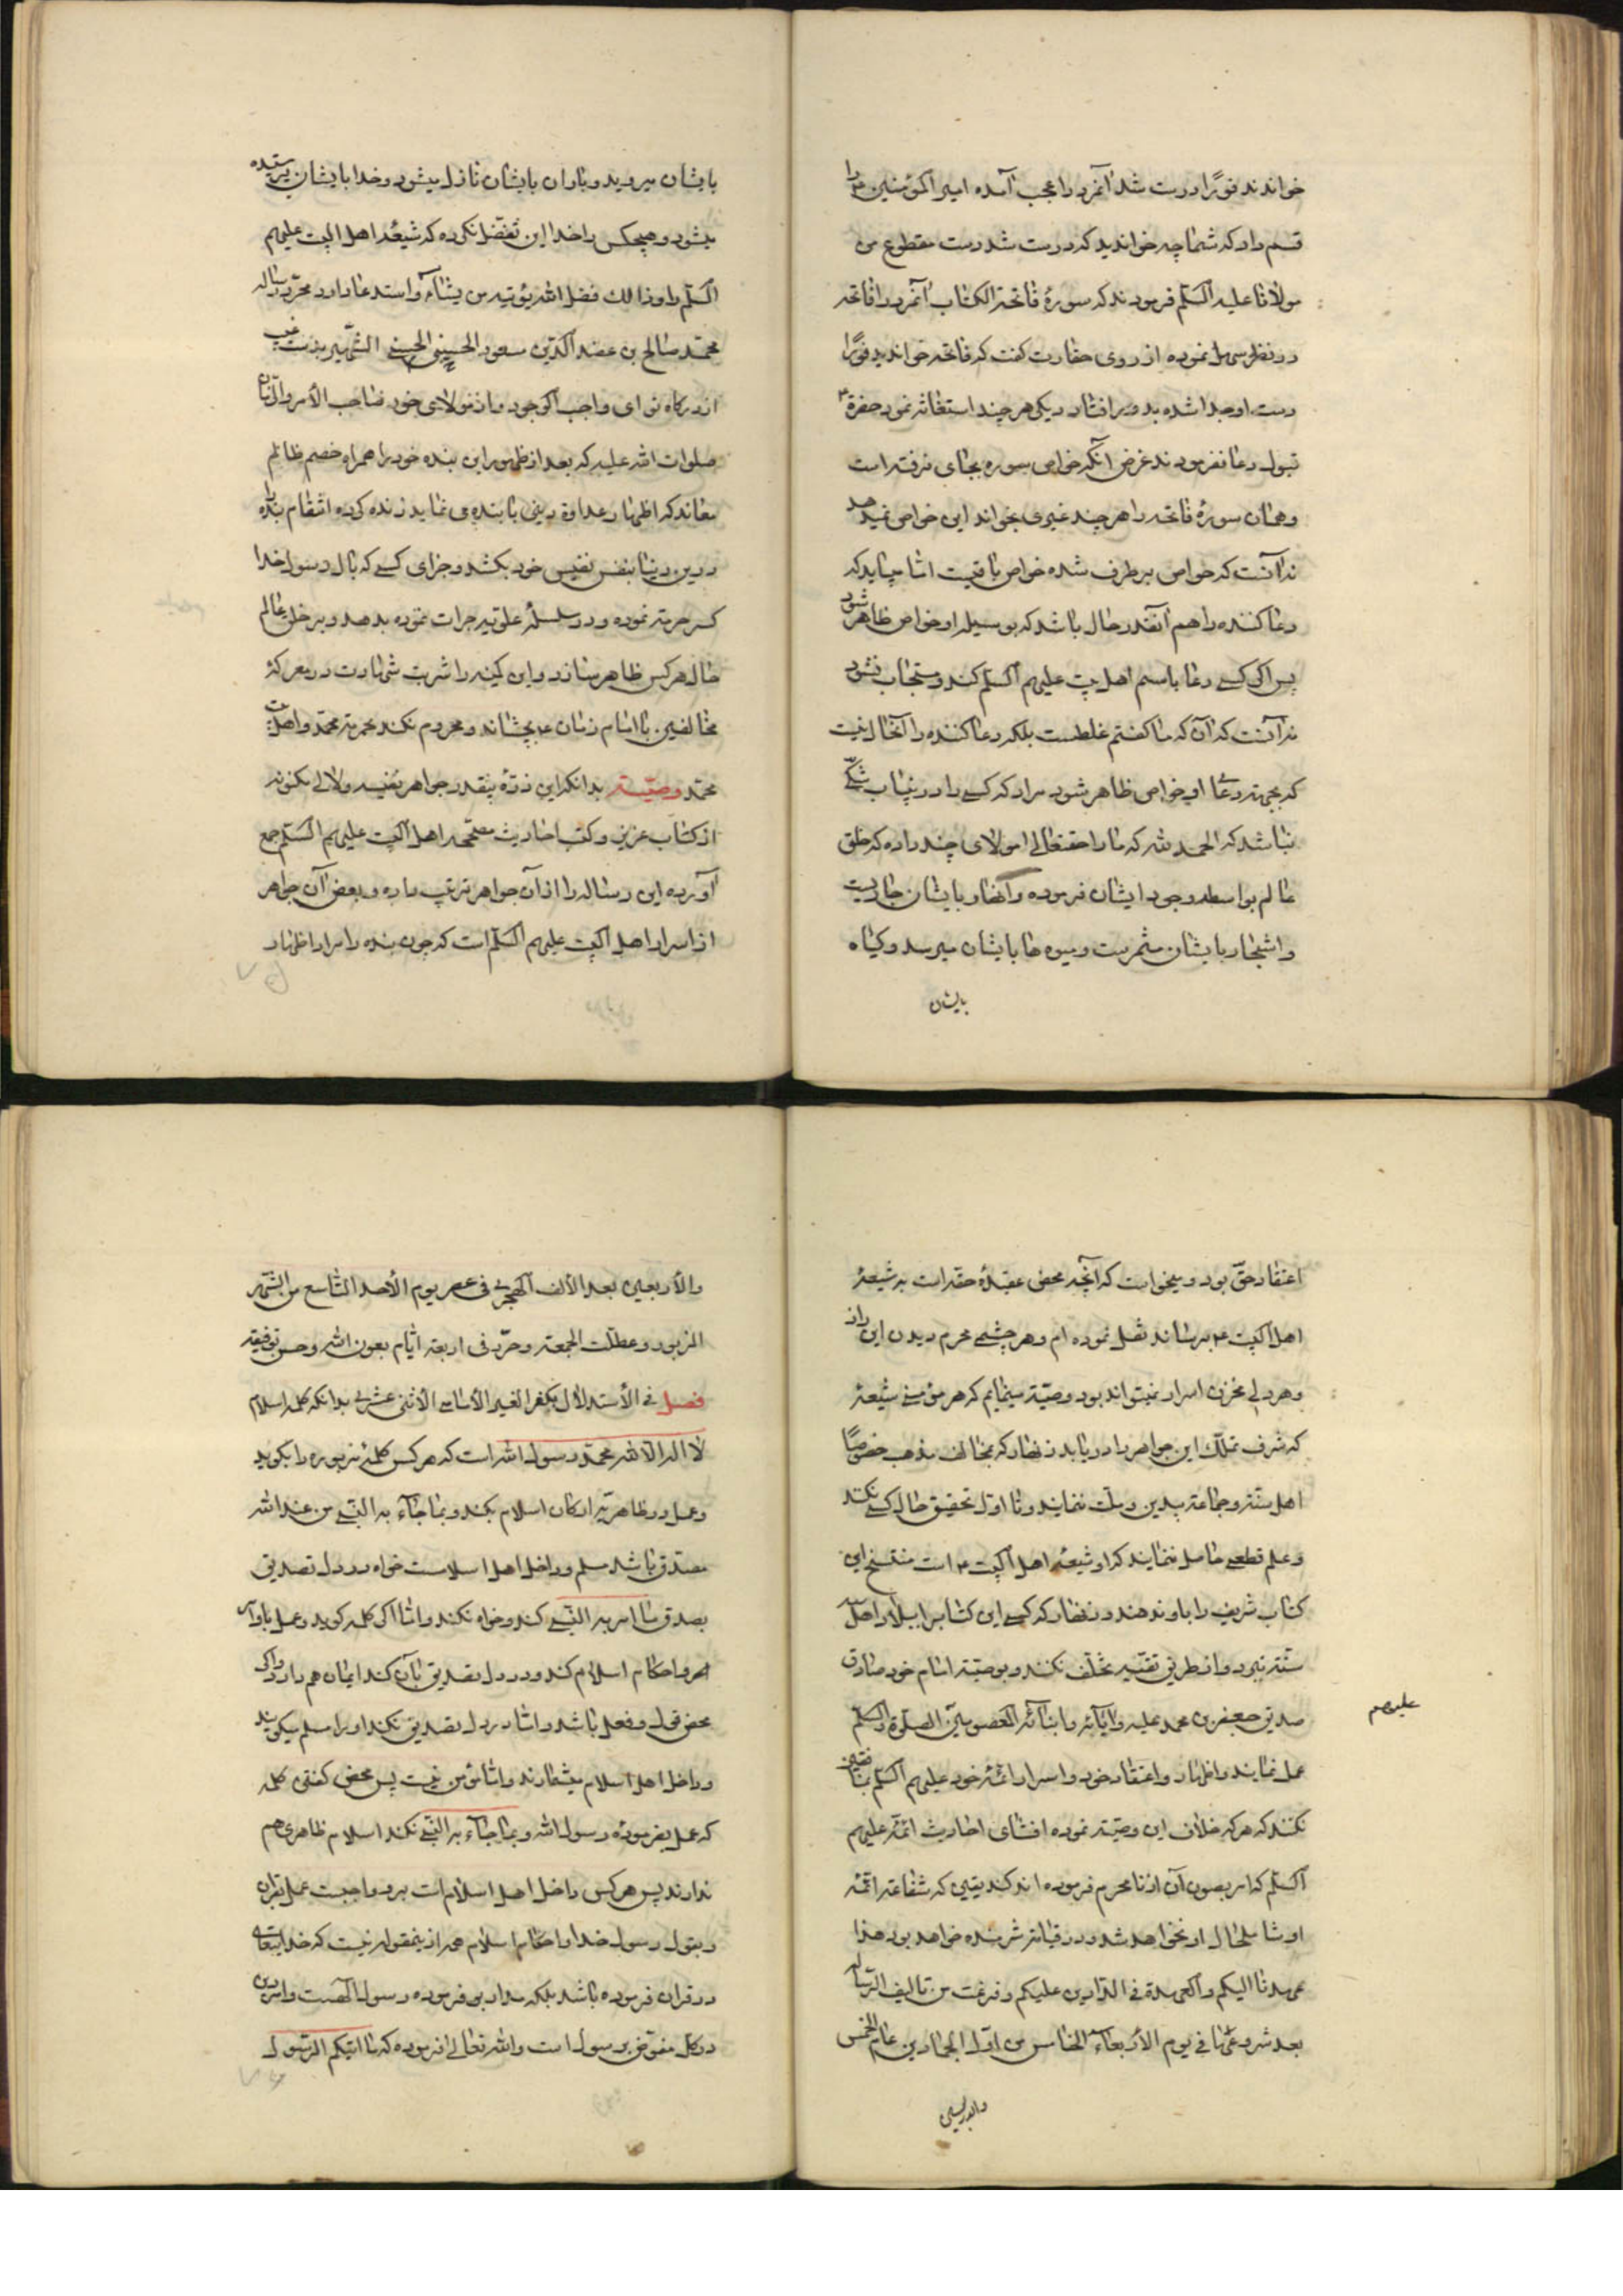 خواندند فورًا درست شد آنمرد را عجب آمده امیر المؤمنین ع را
قسم داد که شما چه خواندید که درست شد دست مقطوع من
مولانا علیه السلم فرمودند که سورهٔ فاتحة الکتاب آنمرد را فاتحه
در نظر سهل نموده از روی حقارت گفت که فاتحه خواندید فورًا
دست او جدا شده بدور افتاد دیگر هر چند استغاثه نمود حضرة ع
قبول دعا نفرمودند غرض آنکه خواص سوره بجای نرفته است
و همان سورهٔ فاتحه را هر چند غیری بخواند این خواص نمیدهد
نه آنست که خواص بر طرف شده خواص باقیست اما میباید که
دعا کننده را هم آنقدر حال باشد که بوسیله او خواص ظاهر شود
پس اگر کسی دعا باسم اهل بیت علیهم السلم کند و مستجاب نشود
نه آنست که آن که ما گفتیم غلطست بلکه دعا کننده را آنحال نیست
که بجهة دعا او خواص ظاهر شود مراد که کسی را در اینباب شکی
نباشد که الحمد لله که ما را حقتعالی مولای چند داده که خلق
عالم بواسطه وجود ایشان فرموده و انهار بایشان جاریست
و اشجار بایشان مثمرست و میوه ها بایشان میرسد و گیاه
بایشان
بایشان میروید و باران بایشان نازل میشود و خدا بایشان پرستیده
میشود و هیچکس را خدا این تفضل نکرده که شیعهٔ اهل البیت علیهم
السلم را و ذالك فضل الله یؤتیه من یشاء و استدعا دارد محرر رساله
محمد صالح بن عضد الدین مسعود الحسینی الحسنی الشهیر بدست غیب
از درگاه تو ای واجب الوجود و از مولای خود صاحب الأمر و الزمان
صلوات الله علیه که بعد از ظهور این بنده خود را همراه خصم ظالم
معاند که اظهار عداوة دینی با بنده می نماید زنده کرده انتقام بنده را
درین دنیا بنفس نفیس خود بکشد و جزای کسی که بآل رسول خدا
کسر حرمة نموده و در سلسلهٔ علویه جرات نموده بدهد و بر خلق عالم
حال هر کس ظاهر سازد و این کمینه را شربت شهادت در معرکهٔ
مخالفین با امام زمان ع بچشاند و محروم نکند بحرمة محمد و اهل بیت
محمد وصیّة بدانکه این ذرهٔ بیقدر جواهر نفیسه و لآلی مکنونه
از کتاب عزیز و کتب احادیث صحیحه اهل البیت علیهم السلم جمع
آورده این رساله را از آن جواهر ترتیب داده و بعض آن جواهر
از اسرار اهل البیت علیهم السلم است که چون بنده را مراد اظهار
اعتقاد حق بود و میخواست که آنچه محض عقیدهٔ حقه است به شیعهٔ
اهل البیت ع برساند نقل نموده ام و هر چشمی محرم دیدن این راز
و هر دلی مخزن اسرار نمیتواند بود وصیّة مینمایم که هر مؤمنی شیعهٔ
که شرف تملك این جواهر را دریابد زنهار که بمخالف مذهب خصوصًا
اهل سنة و جماعة بیدین و ملت ننمایند و تا اول تحقیق حال کسی نکنند
و علم قطعی حاصل ننمایند که او شیعهٔ اهل البیت ع است منتسخ این
کتاب شریف را باو ندهند و زنهار که کسی این کتاب ببلاد اهل
سنة نبرد و از طریق تقیّه تخلف نکنند و بوصیّة امام خود صادق
صدیق جعفر بن محمد علیه و آبائه و ابنائه المعصومین الصلوة و السلم
علیهم
عمل نمایند و اظهار و اعتقاد خود و اسرار ائمهٔ خود علیهم السلم بمنافقین
نکنند که هر که خلاف این وصیّة نموده افشای احادیث ائمه علیهم
السلم که امر بصون آن از نامحرم فرموده اند کند یقین که شفاعة ائمه
او شامل حال او نخواهد شد و در قیامة شرمنده خواهد بود هذا
عهدنا الیکم و العهدة فی الدارین علیکم و فرغت من تالیف الرسالة
بعد شروعی بها فی یوم الأربعاء الخامس من اول الجمادین عام الخمس
والاربعین
والأربعین بعد الألف الهجریة فی عصر یوم الأحد التاسع من الشهر
المزبور و عطلت الجمعة و حرر فی اربعة ایام بعون الله و حسن توفیقه
فصل فی الأستدلال بکفر الغیر الأمامی الأثنی عشری بدانکه کلمه اسلام
لا اله الا الله محمد رسول الله است که هر کس کلمهٔ مزبوره را بگوید
و عمل در ظاهر به ارکان اسلام بکند و بما جاء به النبی من عند الله
مصدق باشد مسلم و داخل اهل اسلامست خواه در دل تصدیق
بصدق ما امر به النبی کند و خواه نکند و اما اگر کلمه گوید و عمل باوامر
امر و احکام اسلام کند و در دل تصدیق بآن کند ایمان هم دارد و اگر
محض قول و فعل باشد و اما در دل تصدیق نکند او را مسلم میگویند
و داخل اهل اسلام میشمارند و اما مؤمن نیست پس محض گفتن کلمه
که عمل بفرمودهٔ رسول الله و بما جاء به النبی نکند اسلام ظاهری هم
ندارند پس هر کس داخل اهل اسلام است برو واجبست عمل بقران
و بقول رسول خدا و احکام اسلام همه ازینمقوله نیست که خدایتعالی
در قران فرموده باشد بلکه مدار بر فرموده رسول الله است و امر دین
در کل مفوض برسول است و الله تعالی فرموده که ما اتیکم الرسول